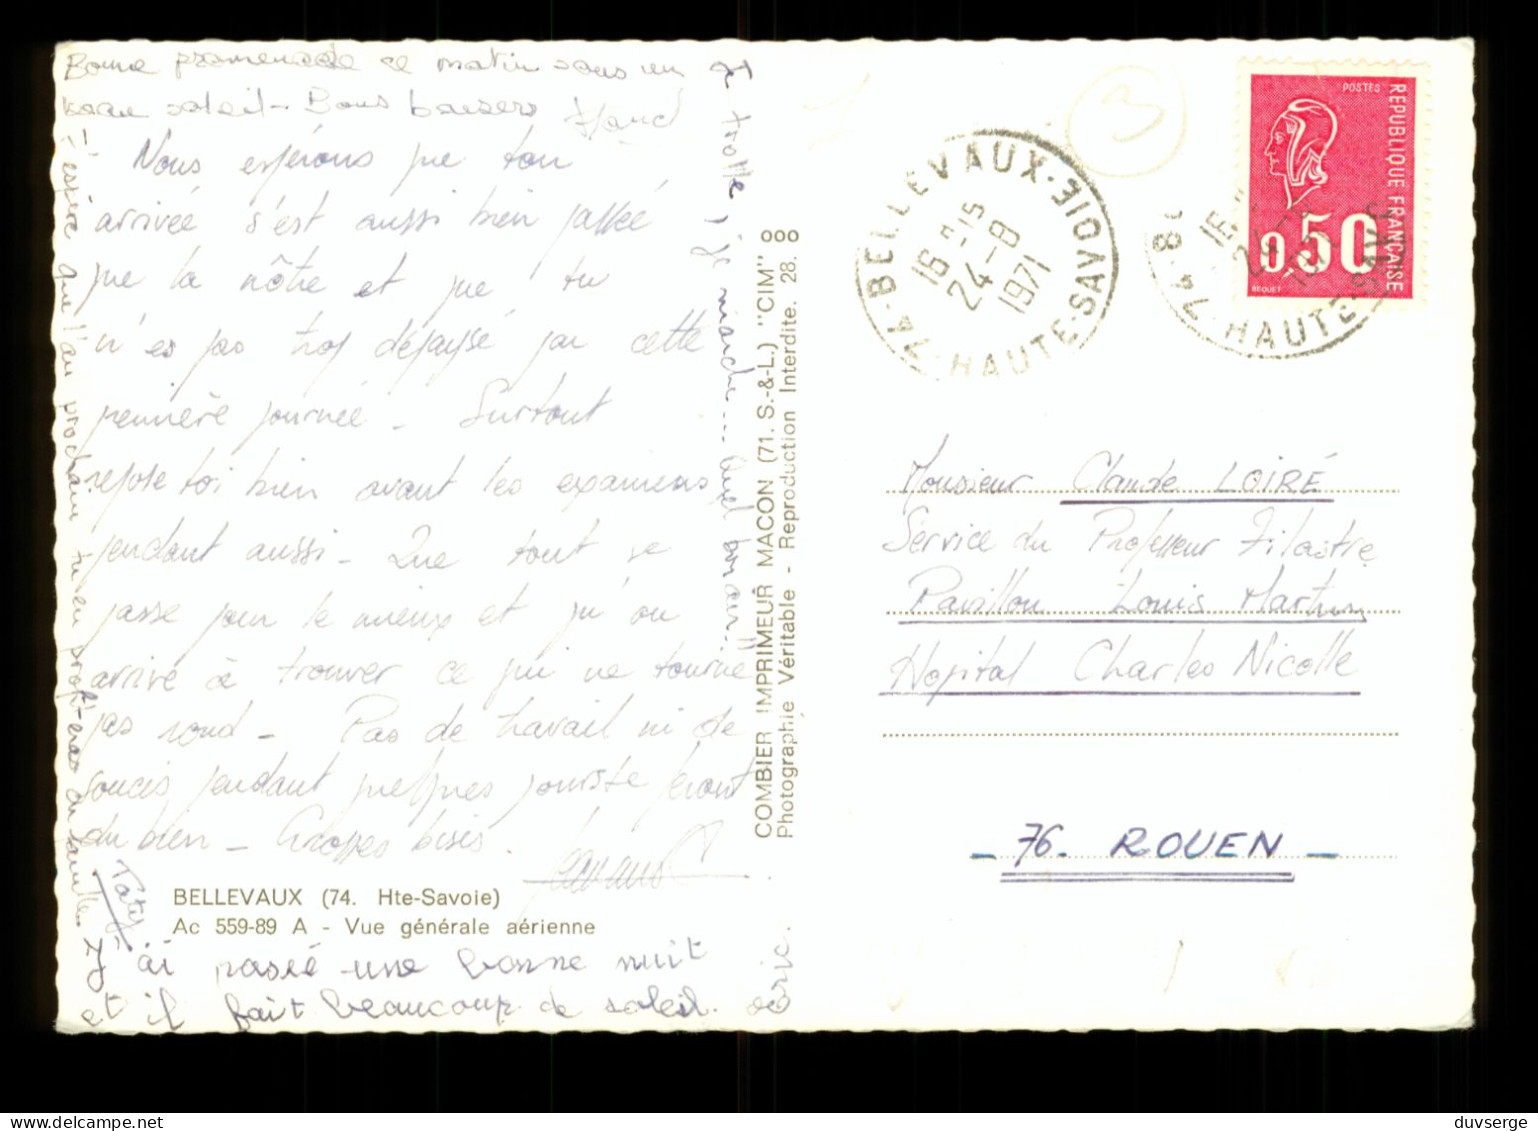 Bonne promenade ce matin sous un
beau soleil - Bons baisers
Nous espérons que ton
arrivée s'est aussi bien passée
que la nôtre et que tu
n'es pas trop dépaysé par cette
première journée - Surtout
repose toi bien avant les examens
pendant aussi - Que tout se
passe pour le mieux et qu'on
arrive à trouver ce qui ne tourne
pas rond - Pas de travail ni de
soucis pendant quelques jours te feront
du bien - Grosses bises.
J'espère que l'an prochain tu en profiteras
Taty
BELLEVAUX (74. Hte-Savoie)
Ac 559-89 A - Vue générale aérienne
J'ai passé une bonne nuit
et il fait beaucoup de soleil.
éric.
je marche...
COMBIER IMPRIMEUR MACON (71. S.-&-L.) "CIM"
Photographie Véritable - Reproduction Interdite. 28.
ooo
3
74-BELLEVAUX·HAUTE-SAVOIE
16H15
24-8
1971
POSTES
REPUBLIQUE FRANÇAISE
0,50
BEQUET
74·HAUTE-SAVOIE
Monsieur Claude LOIRÉ
Service du Professeur Filastre
Pavillon Louis Martin
Hopital Charles Nicolle
- 76. ROUEN -
duvserge